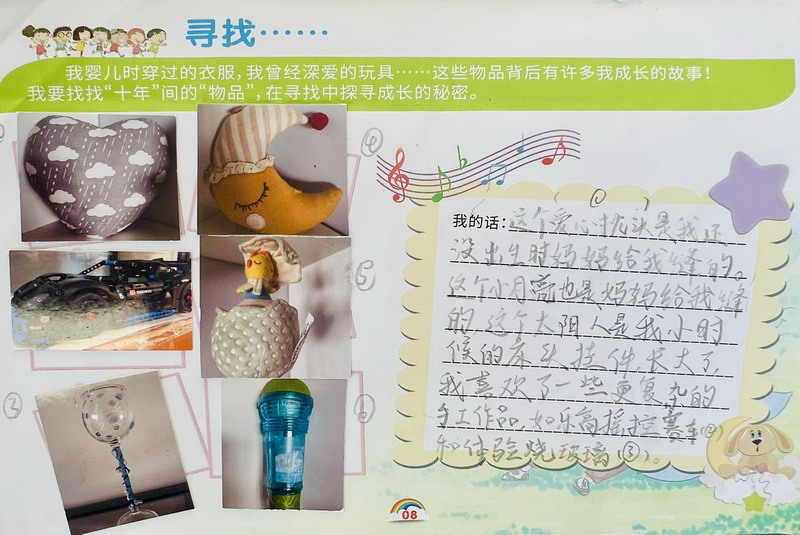 寻找……
我婴儿时穿过的衣服，我曾经深爱的玩具……这些物品背后有许多我成长的故事！
我要找找“十年”间的“物品”，在寻找中探寻成长的秘密。
④
⑤
③
我的话：这个爱心枕头是我还
没出生时妈妈给我缝的。
这个小月亮也是妈妈给我缝
的，这个太阳人是我小时
候的床头挂件，长大了，
我喜欢了一些更复杂的
手工作品，如乐高摇控赛车②
和体验烧玻璃（③）。
08